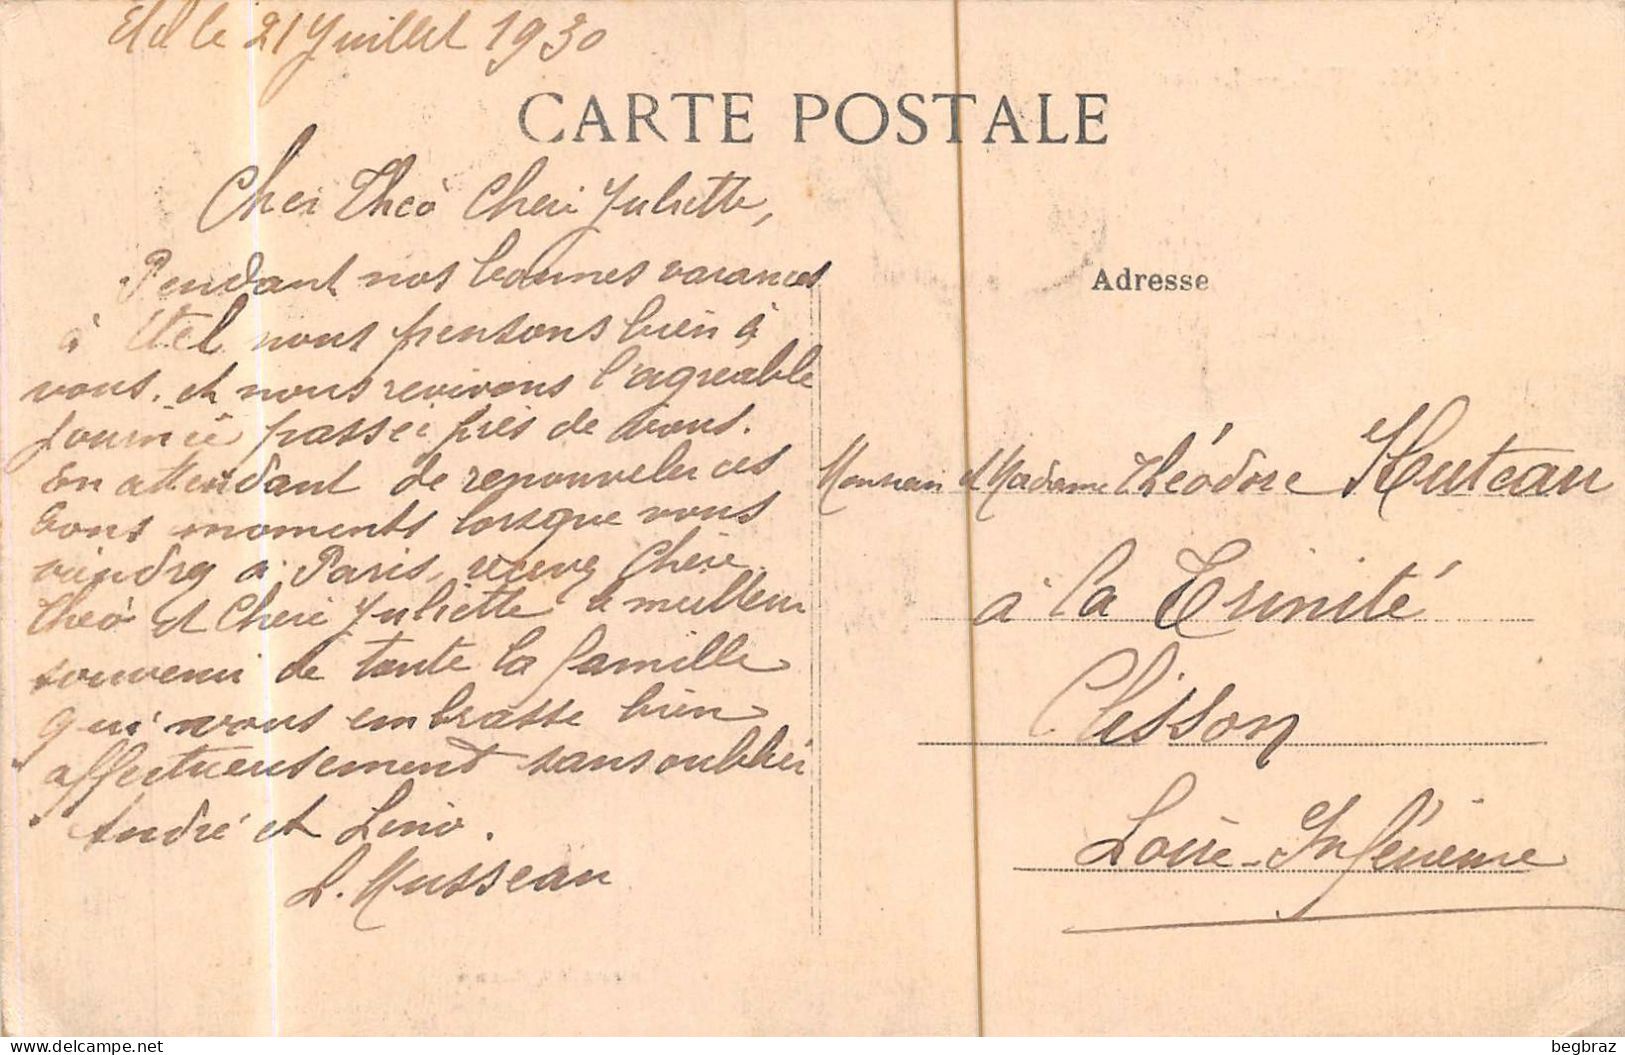 Etel le 21 Juillet 1930
CARTE POSTALE
Cher Théo Chère Juliette,
Pendant nos bonnes vacances
à Etel nous pensons bien à
vous, et nous revivons l'agréable
journée passée près de vous.
En attendant de renouveler ces
bons moments lorsque vous
viendrez à Paris, recevez Chère
Théo et Chère Juliette le meilleur
souvenir de toute la famille
qui vous embrasse bien
affectueusement sans oublier
André et Lino.
L. Musseau
Adresse
Monsieur et Madame Théodore Huteau
à la Trinité
Clisson
Loire-Inférieure
begbraz